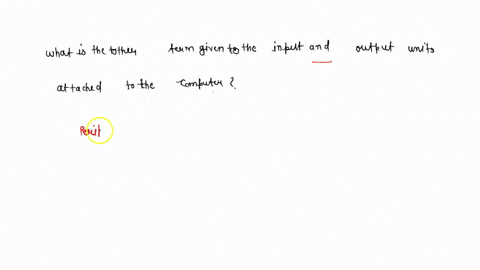 what is the tother term given to the input and output units
attached to the computer?
Perit